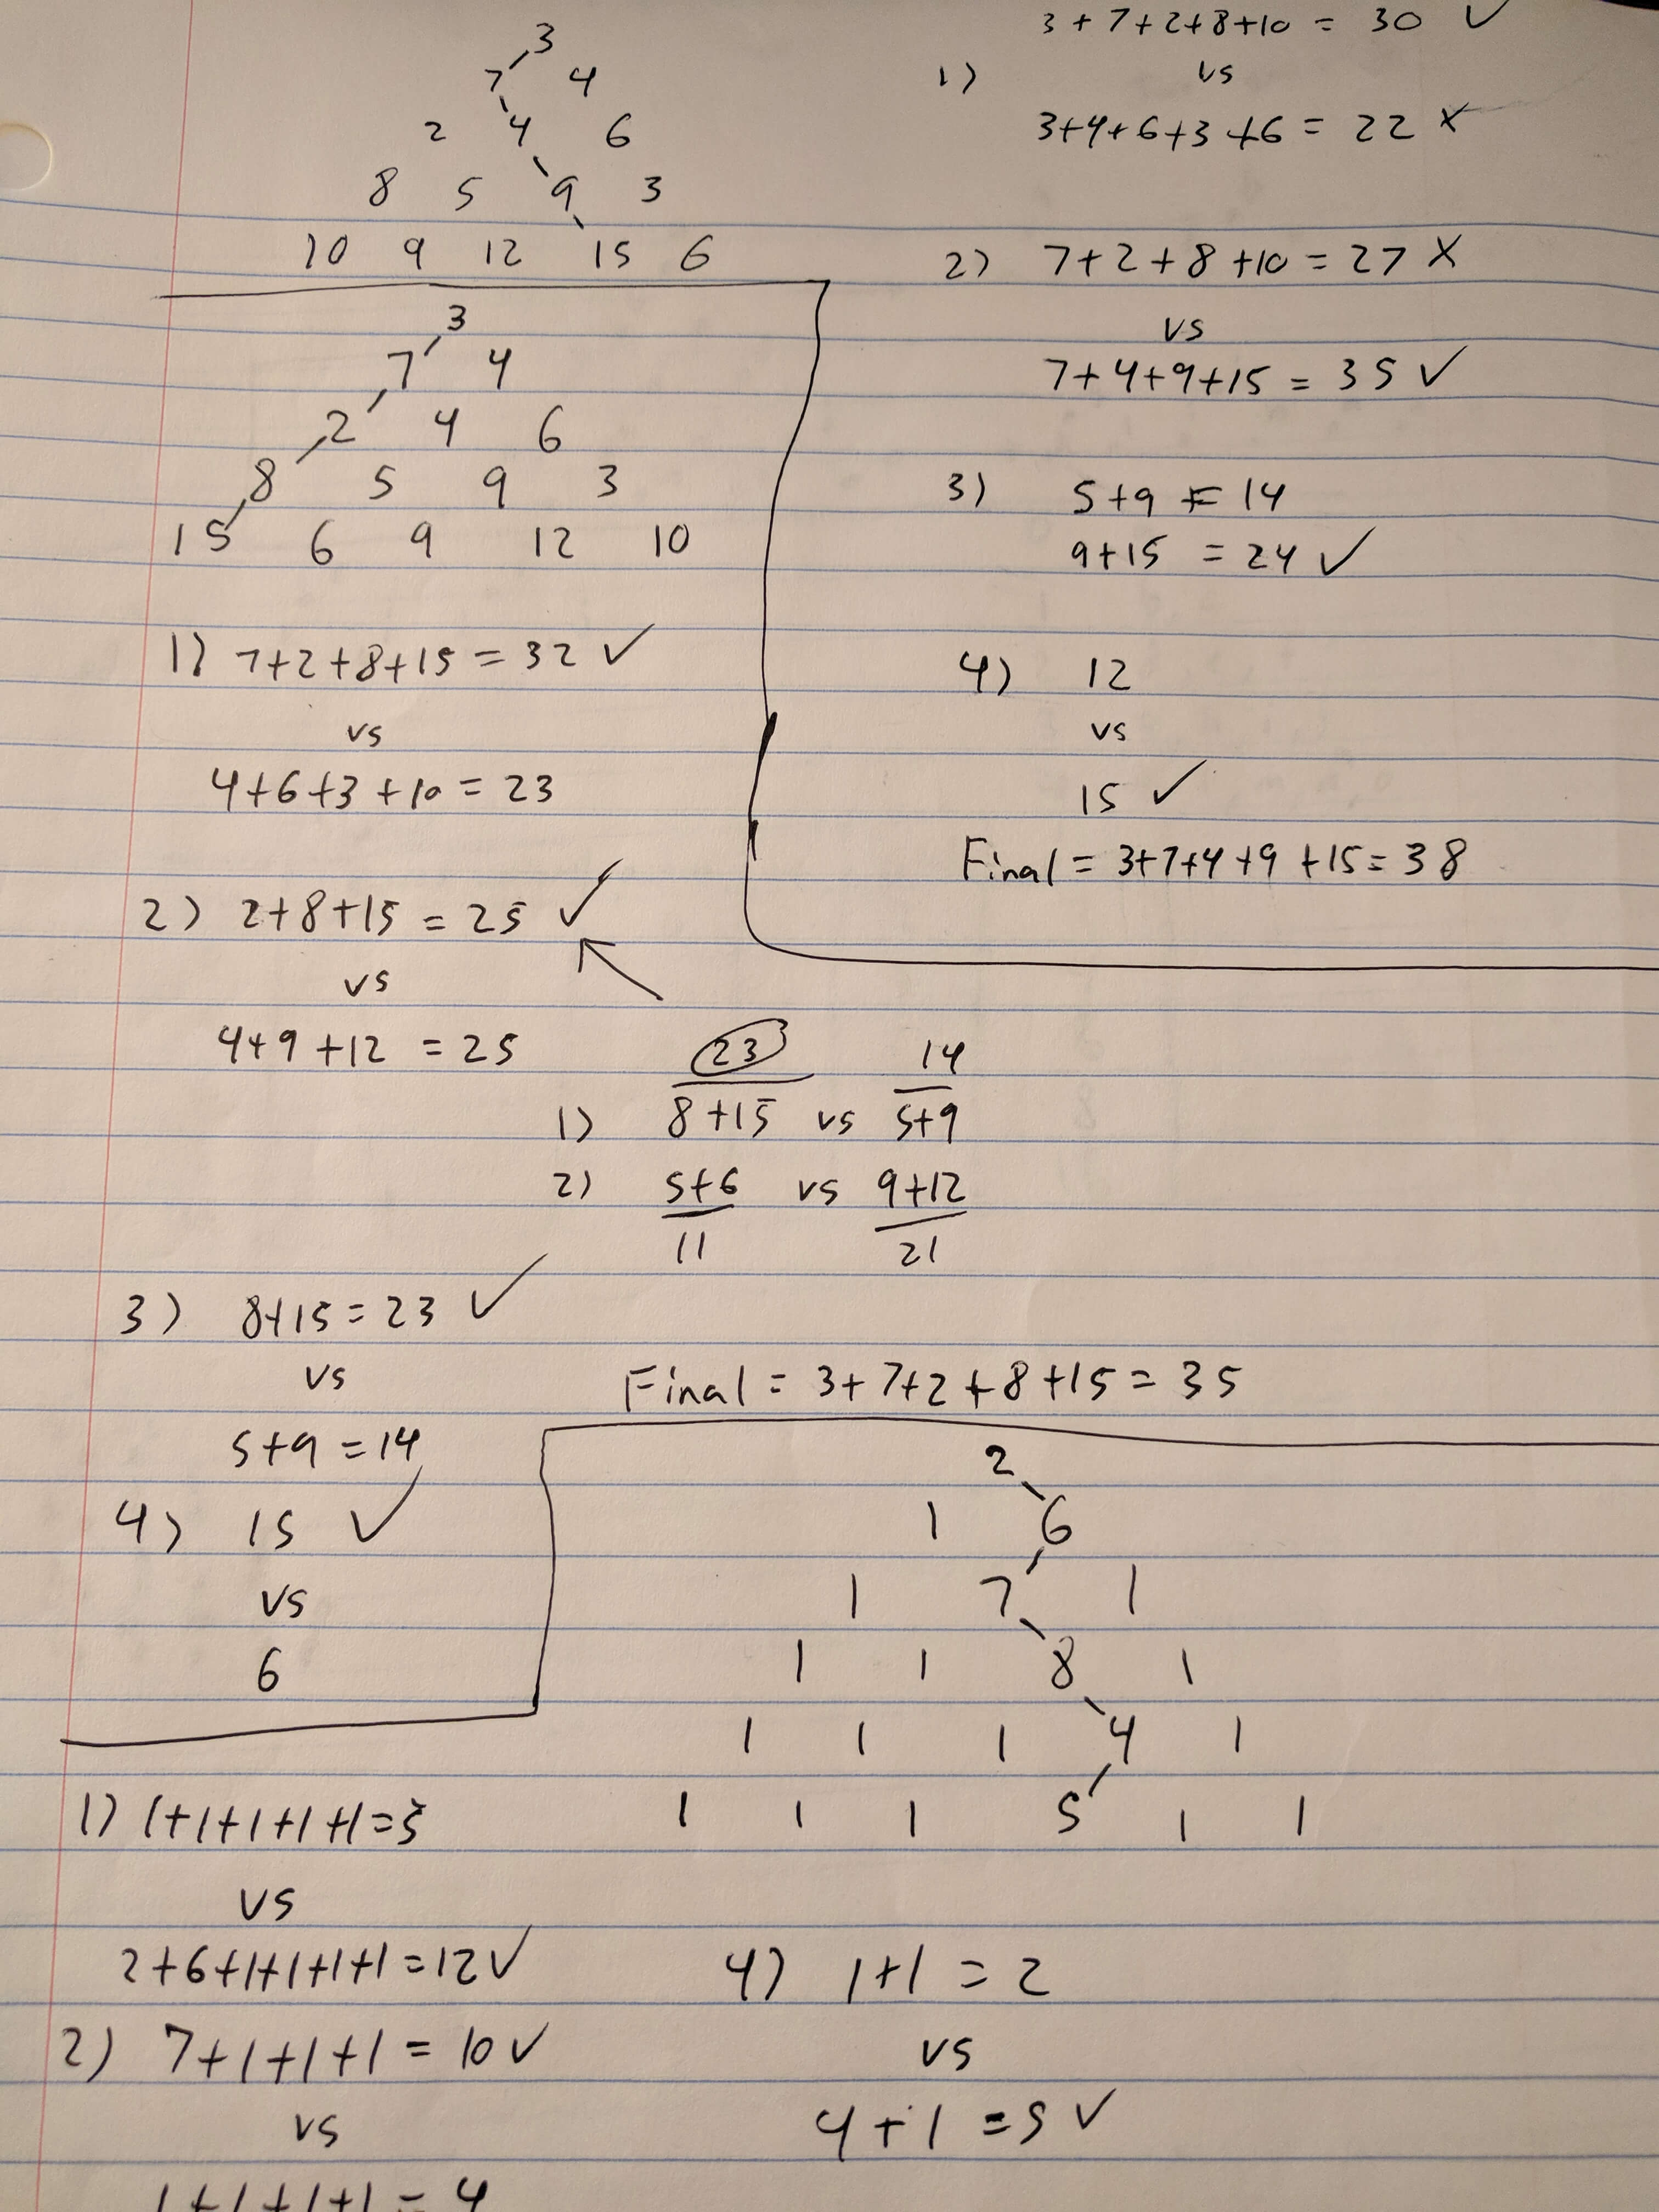 3
7 4
2 4 6
8 5 9 3
10 9 12 15 6
3+7+2+8+10 = 30 ✓
1) vs
3+4+6+3+6 = 22 X
2) 7+2+8+10 = 27 X
vs
7+4+9+15 = 35 ✓
3) 5+9 = 14
9+15 = 24 ✓
4) 12
vs
15 ✓
Final = 3+7+4+9+15 = 38
3
7 4
2 4 6
8 5 9 3
15 6 9 12 10
1) 7+2+8+15 = 32 ✓
vs
4+6+3+10 = 23
2) 2+8+15 = 25 ✓
vs
4+9+12 = 25
23 14
1) 8+15 vs 5+9
2) 5+6 vs 9+12
11 21
3) 8+15 = 23 ✓
vs
5+9 = 14
4) 15 ✓
vs
6
Final = 3+7+2+8+15 = 35
2
1 6
1 7 1
1 1 8 1
1 1 1 4 1
1 1 1 5 1 1
1) 1+1+1+1+1=5
vs
2+6+1+1+1+1=12 ✓
2) 7+1+1+1 = 10 ✓
vs
1+1+1+1 = 4
4) 1+1 = 2
vs
4+1 = 5 ✓